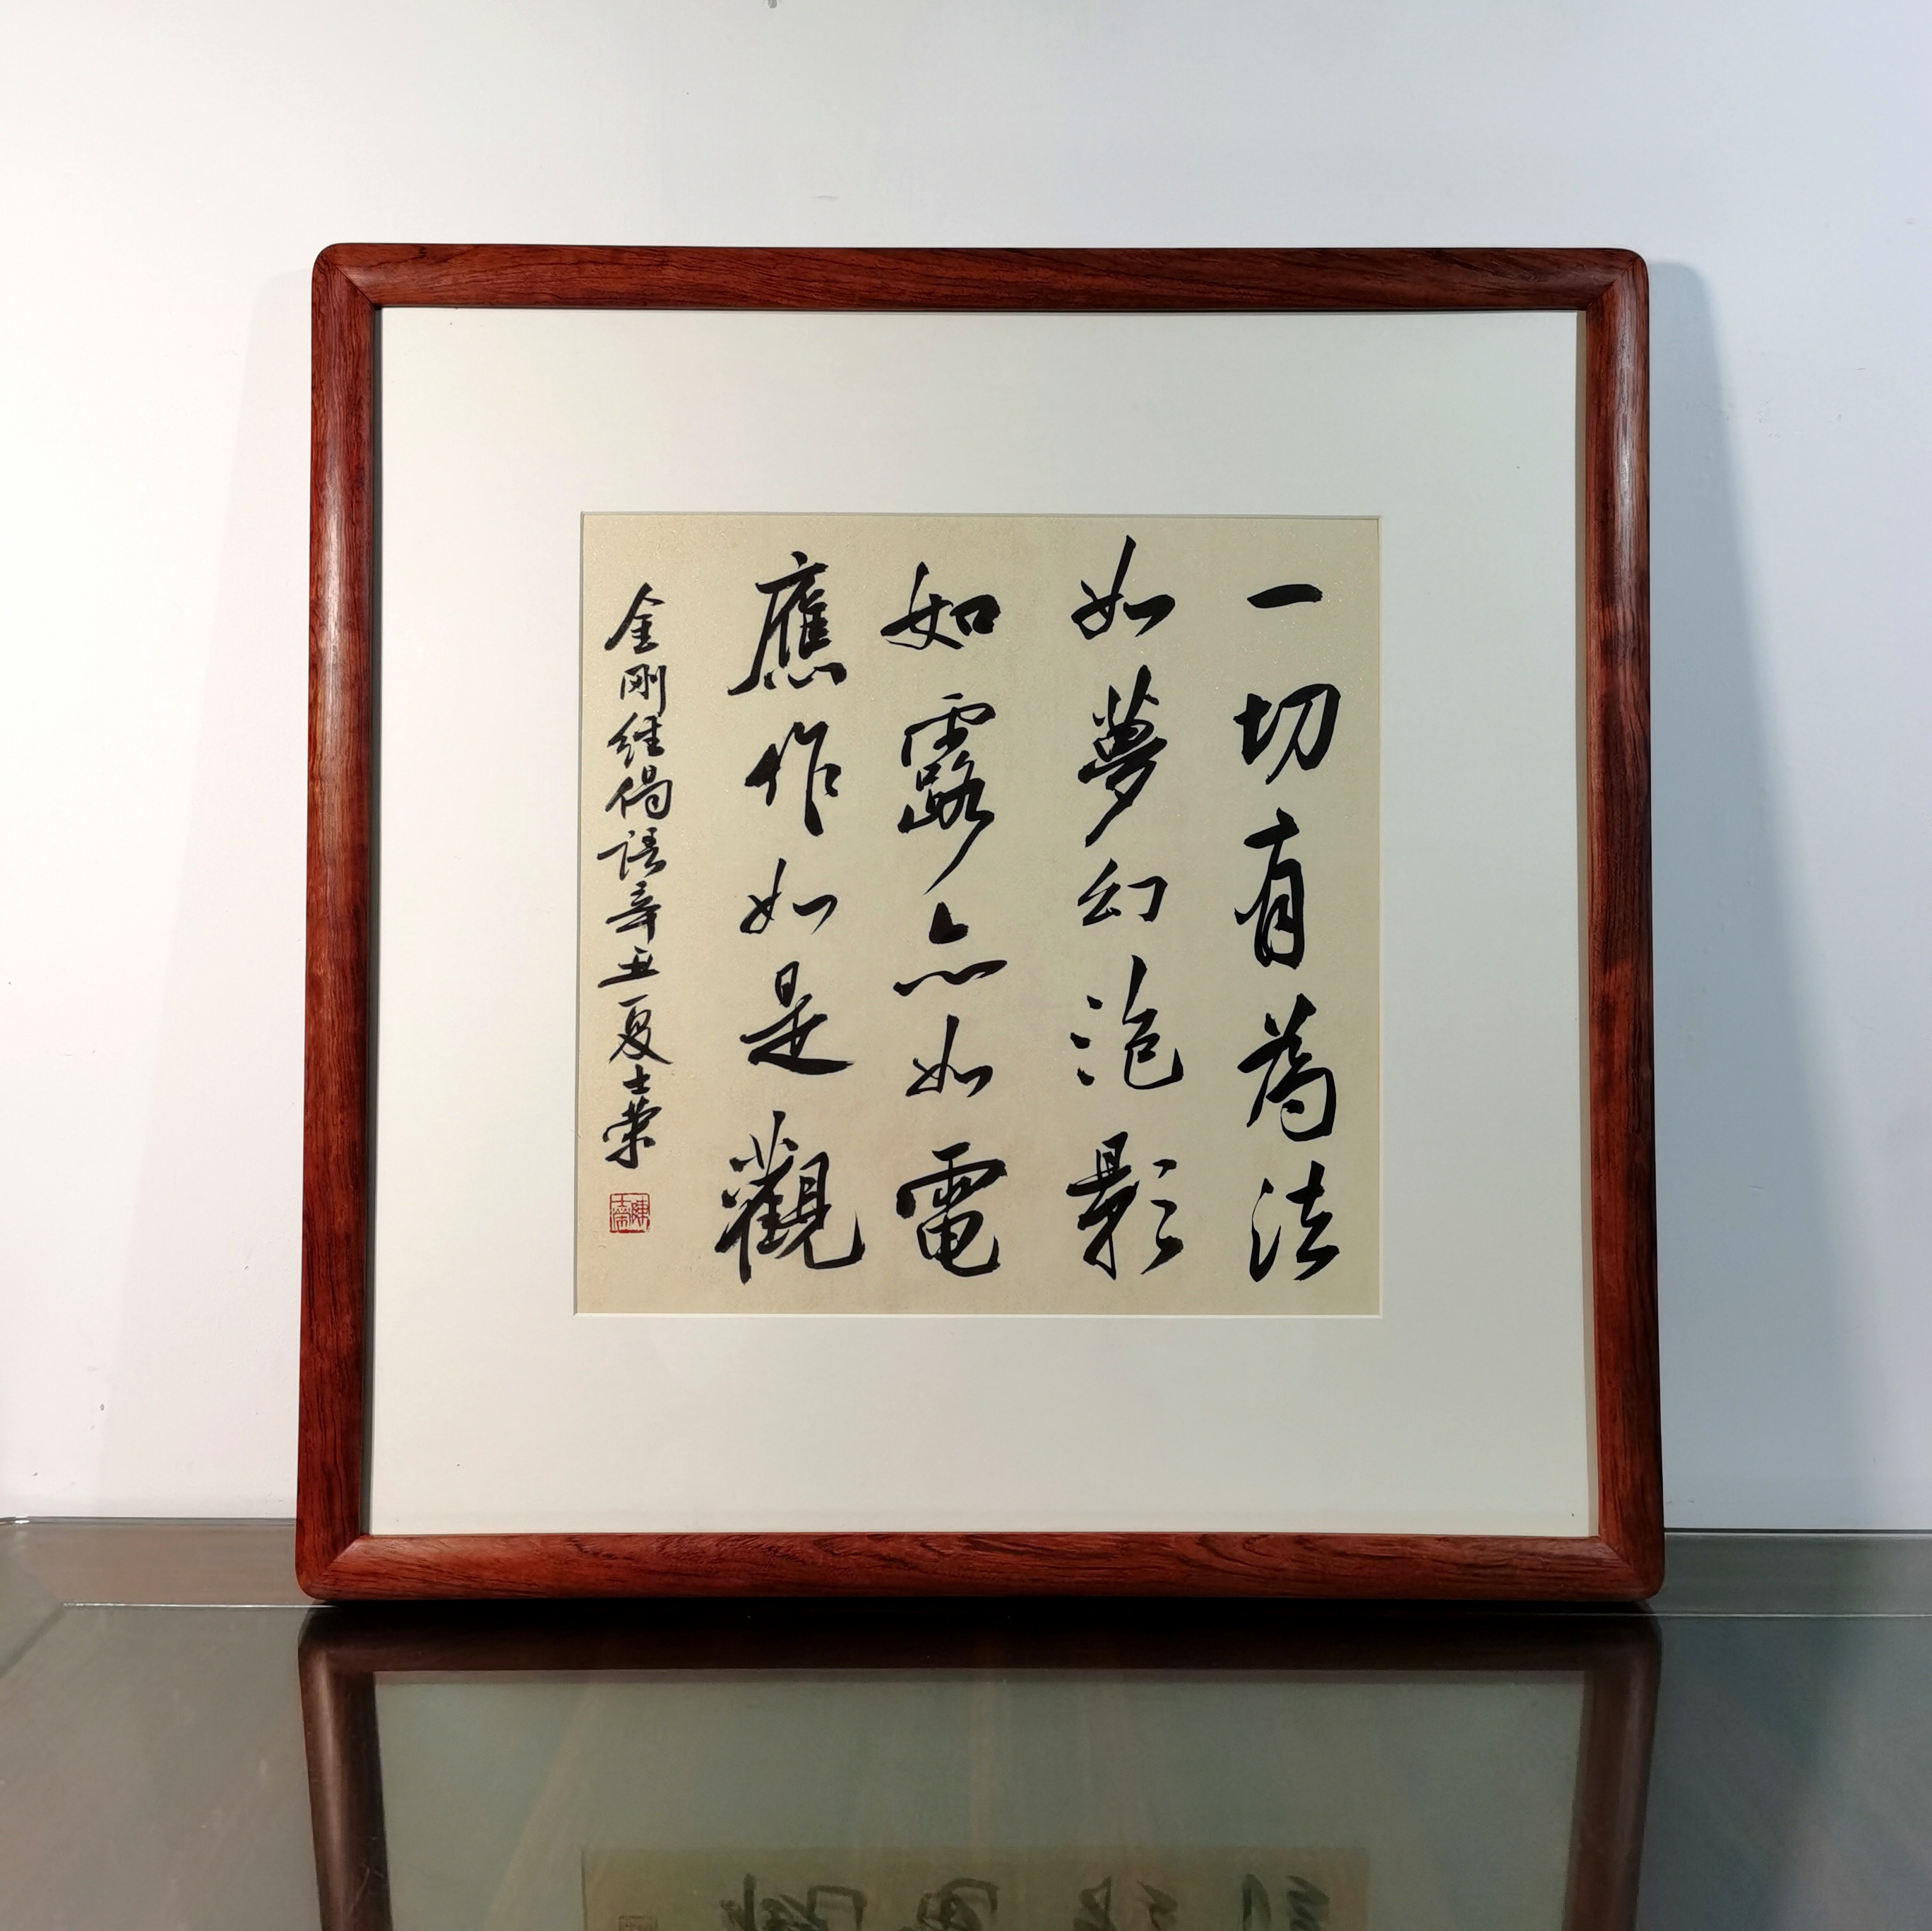 一切有為法
如夢幻泡影
如露亦如電
應作如是觀
金剛经偈語辛丑夏士榮
陳士榮